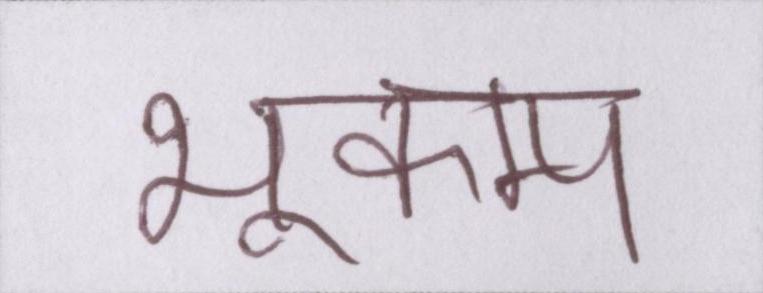 भूकम्प